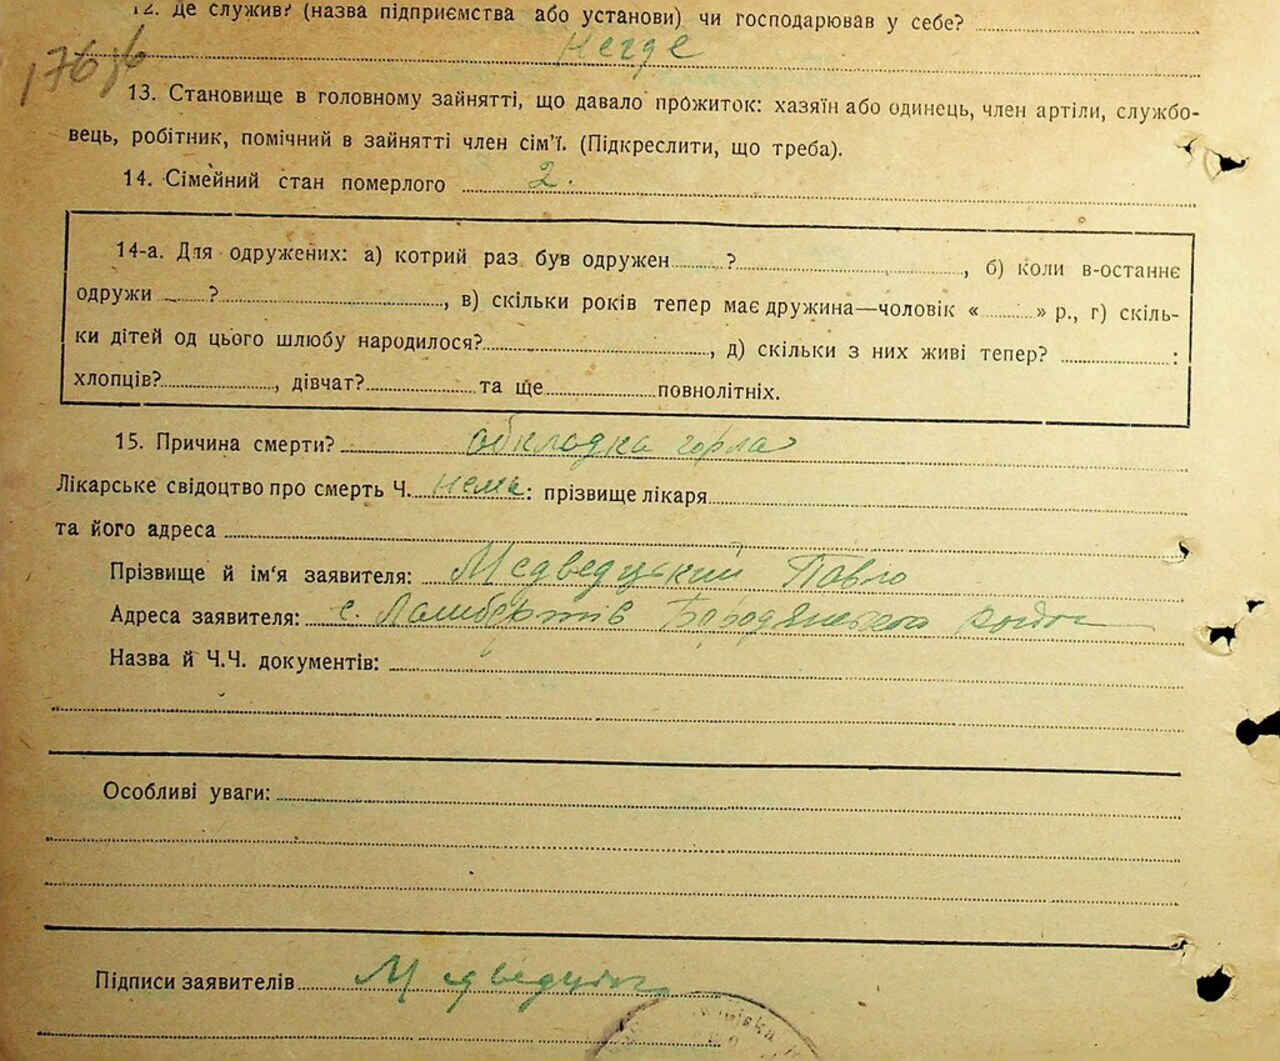 12. Де служив? (назва підприємства або установи) чи господарював у себе?
176зв Негде
13. Становище в головному зайнятті, що давало прожиток: хазяїн або одинець, член артіли, службо-
вець, робітник, помічний в зайнятті член сім'ї. (Підкреслити, що треба).
14. Сімейний стан померлого 2.
14-а. Для одружених: а) котрий раз був одружен ?, б) коли в-останнє
одружи ?, в) скільки років тепер має дружина—чоловік « » р., г) скіль-
ки дітей од цього шлюбу народилося?, д) скільки з них живі тепер? :
хлопців?, дівчат? та ще повнолітніх.
15. Причина смерти? обкладка горла
Лікарське свідоцтво про смерть Ч. нема: прізвище лікаря
та його адреса
Прізвище й ім'я заявителя: Медведуский Павло
Адреса заявителя: с. Бородянського
Назва й Ч.Ч. документів:
Особливі уваги:
Підписи заявителів